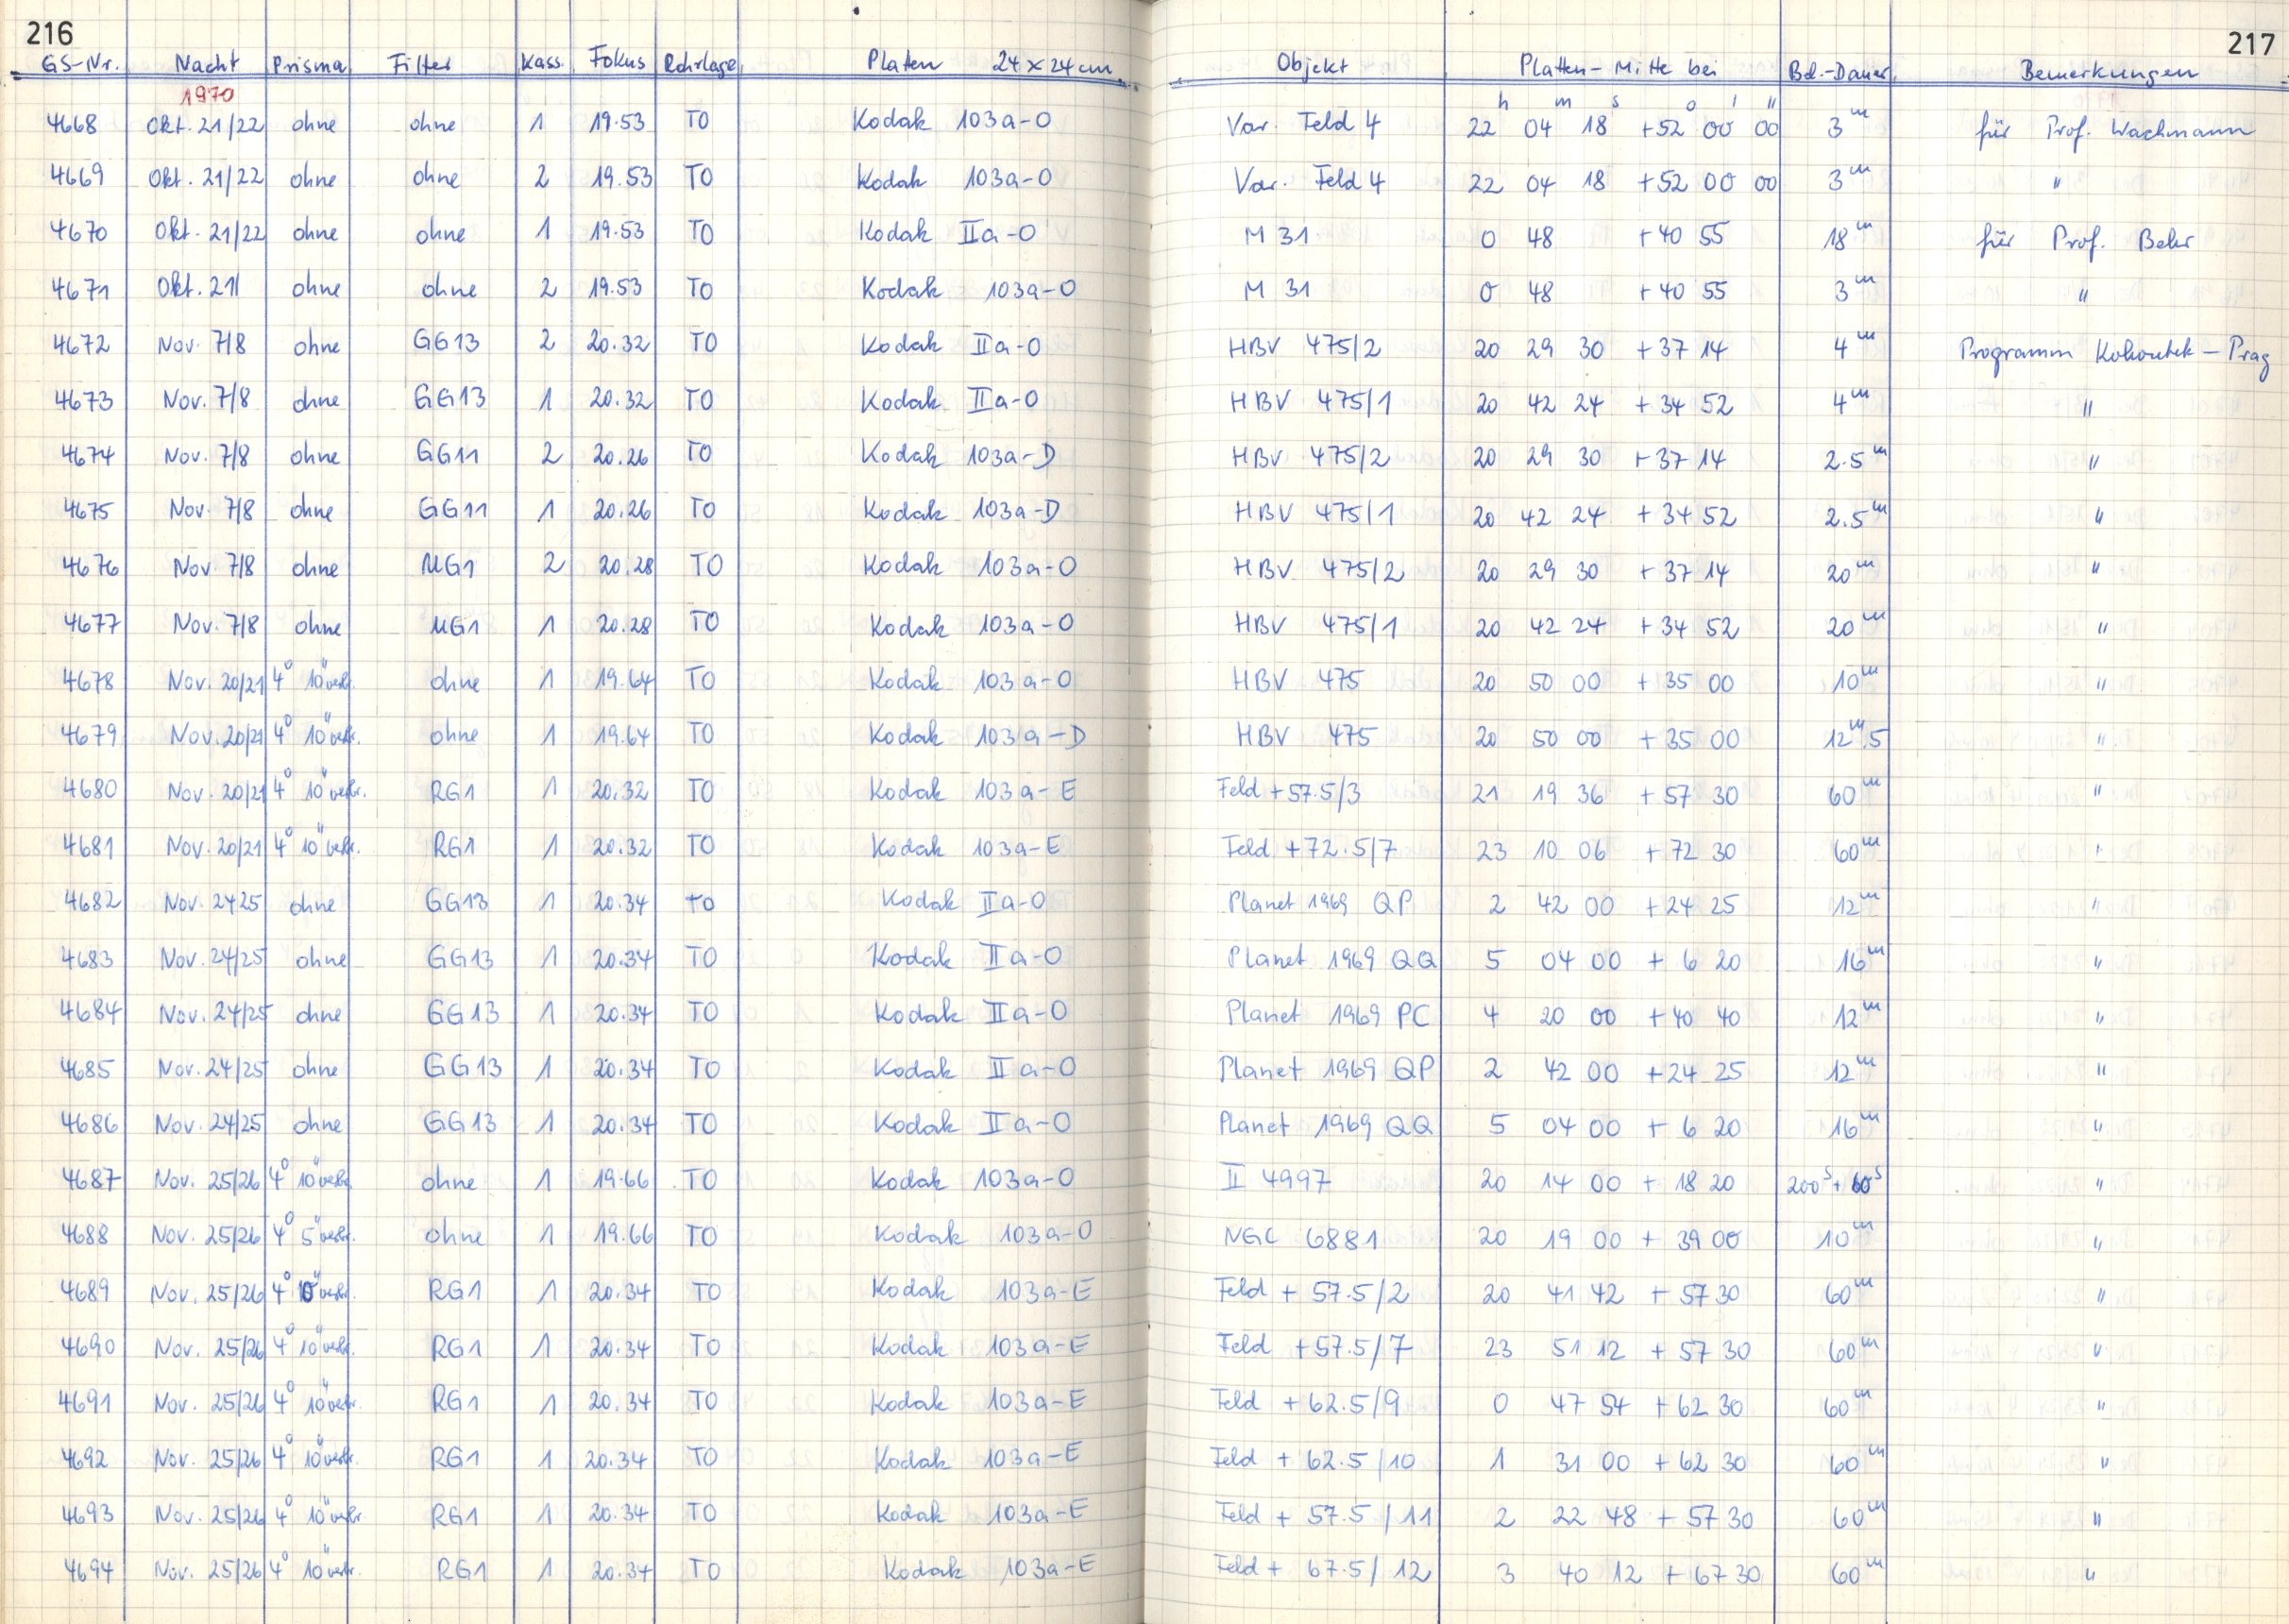 216
217
GS-Nr. Nacht Prisma Filter Kass. Fokus Rohrlage Platten 24 × 24 cm Objekt Platten-Mitte bei Bd.-Dauer Bemerkungen
1970
h m s o ' "
4668 Okt. 21/22 ohne ohne 1 19.53 TO Kodak 103a-O Var. Feld 4 22 04 18 +52 00 00 3m für Prof. Wachmann
4669 Okt. 21/22 ohne ohne 2 19.53 TO Kodak 103a-O Var. Feld 4 22 04 18 +52 00 00 3m "
4670 Okt. 21/22 ohne ohne 1 19.53 TO Kodak IIa-O M 31 0 48 +40 55 18m für Prof. Behr
4671 Okt. 21/ ohne ohne 2 19.53 TO Kodak 103a-O M 31 0 48 +40 55 3m "
4672 Nov. 7/8 ohne GG13 2 20.32 TO Kodak IIa-O HBV 475/2 20 29 30 +37 14 4m Programm Kohoutek - Prag
4673 Nov. 7/8 ohne GG13 1 20.32 TO Kodak IIa-O HBV 475/1 20 42 24 +34 52 4m "
4674 Nov. 7/8 ohne GG11 2 20.26 TO Kodak 103a-D HBV 475/2 20 29 30 +37 14 2.5m "
4675 Nov. 7/8 ohne GG11 1 20.26 TO Kodak 103a-D HBV 475/1 20 42 24 +34 52 2.5m "
4676 Nov. 7/8 ohne UG1 2 20.28 TO Kodak 103a-O HBV 475/2 20 29 30 +37 14 20m "
4677 Nov. 7/8 ohne UG1 1 20.28 TO Kodak 103a-O HBV 475/1 20 42 24 +34 52 20m "
4678 Nov. 20/21 4° 10" verbr. ohne 1 19.64 TO Kodak 103a-O HBV 475 20 50 00 +35 00 10m "
4679 Nov. 20/21 4° 10" verbr. ohne 1 19.64 TO Kodak 103a-D HBV 475 20 50 00 +35 00 12m.5 "
4680 Nov. 20/21 4° 10" verbr. RG1 1 20.32 TO Kodak 103a-E Feld +57.5/3 21 19 36 +57 30 60m "
4681 Nov. 20/21 4° 10" verbr. RG1 1 20.32 TO Kodak 103a-E Feld +72.5/7 23 10 06 +72 30 60m "
4682 Nov. 24 25 ohne GG13 1 20.34 TO Kodak IIa-O Planet 1969 QP 2 42 00 +24 25 12m "
4683 Nov. 24/25 ohne GG13 1 20.34 TO Kodak IIa-O Planet 1969 QQ 5 04 00 + 6 20 16m "
4684 Nov. 24/25 ohne GG13 1 20.34 TO Kodak IIa-O Planet 1969 PC 4 20 00 +40 40 12m "
4685 Nov. 24/25 ohne GG13 1 20.34 TO Kodak IIa-O Planet 1969 QP 2 42 00 +24 25 12m "
4686 Nov. 24/25 ohne GG13 1 20.34 TO Kodak IIa-O Planet 1969 QQ 5 04 00 + 6 20 16m "
4687 Nov. 25/26 4° 10" verbr. ohne 1 19.66 TO Kodak 103a-O II 4997 20 14 00 + 18 20 200s + 60s "
4688 Nov. 25/26 4° 5" verbr. ohne 1 19.66 TO Kodak 103a-O NGC 6881 20 19 00 + 39 00 10m "
4689 Nov. 25/26 4° 10" verbr. RG1 1 20.34 TO Kodak 103a-E Feld + 57.5/2 20 41 42 + 57 30 60m "
4690 Nov. 25/26 4° 10" verbr. RG1 1 20.34 TO Kodak 103a-E Feld +57.5/7 23 51 12 + 57 30 60m "
4691 Nov. 25/26 4° 10" verbr. RG1 1 20.34 TO Kodak 103a-E Feld + 62.5/9 0 47 54 + 62 30 60m "
4692 Nov. 25/26 4° 10" verbr. RG1 1 20.34 TO Kodak 103a-E Feld + 62.5/10 1 31 00 + 62 30 60m "
4693 Nov. 25/26 4° 10" verbr. RG1 1 20.34 TO Kodak 103a-E Feld + 57.5/11 2 22 48 + 57 30 60m "
4694 Nov. 25/26 4° 10" verbr. RG1 1 20.34 TO Kodak 103a-E Feld + 67.5/12 3 40 12 + 67 30 60m "